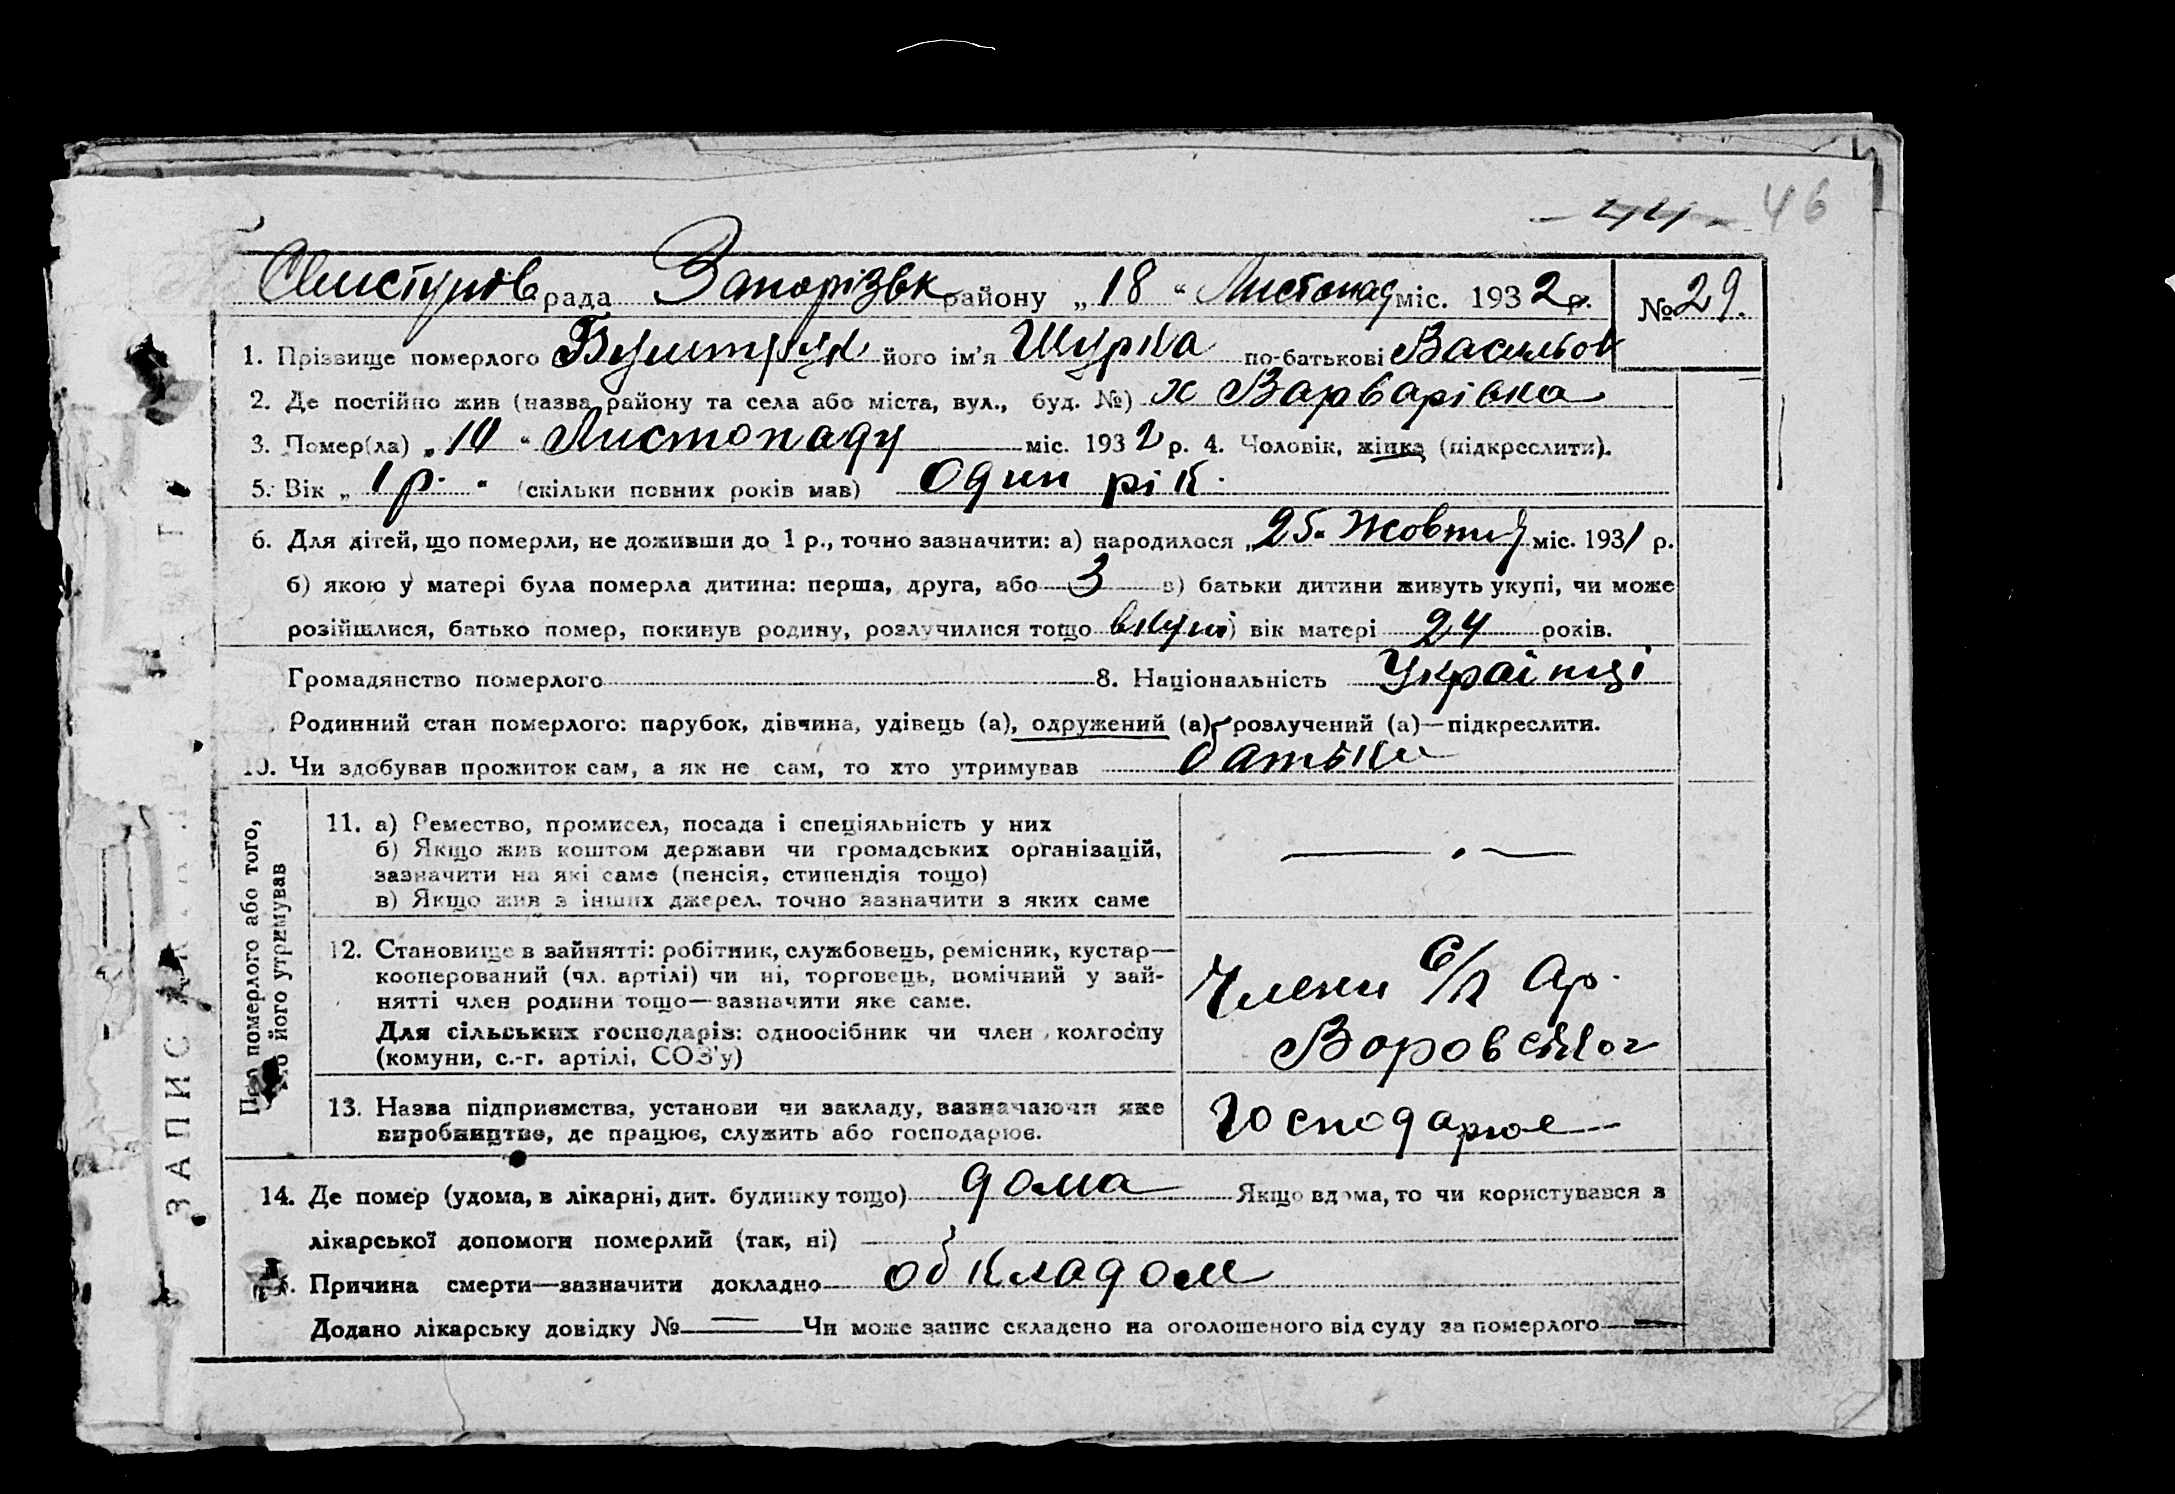 44 46
рада Запорізьк району „18“ Листопад міс. 1932 р. № 29.
1. Прізвище померлого його ім'я Шурка по-батькові Васильов
2. Де постійно жив (назва району та села або міста, вул., буд. №) х Варварівка
3. Помер(ла) „10“ Листопаду міс. 1932 р. 4. Чоловік, жінка (підкреслити).
5. Вік „1 р.“ (скільки повних років мав) Один рік.
6. Для дітей, що померли, не доживши до 1 р., точно зазначити: а) народилося „25“ Жовтня міс. 1931 р.
б) якою у матері була померла дитина: перша, друга, або 3 в) батьки дитини живуть укупі, чи може
розійшлися, батько помер, покинув родину, розлучилися тощо вкупі) вік матері 24 років.
Громадянство померлого 8. Національність Українці
Родинний стан померлого: парубок, дівчина, удівець (а), одружений (а), розлучений (а)—підкреслити.
10. Чи здобував прожиток сам, а як не сам, то хто утримував батьки
Про померлого або того,
хто його утримував
11. а) Ремество, промисел, посада і спеціяльність у них
б) Якщо жив коштом держави чи громадських організацій,
зазначити на які саме (пенсія, стипендія тощо)
в) Якщо жив з інших джерел, точно зазначити з яких саме
12. Становище в зайнятті: робітник, службовець, ремісник, кустар—
кооперований (чл. артілі) чи ні, торговець, помічний у зай-
нятті член родини тощо—зазначити яке саме.
Для сільських господарів: одноосібник чи член колгоспу
(комуни, с.-г. артілі, СОЗ'у)
Члени с/г ар.
13. Назва підприємства, установи чи закладу, зазначаючи яке
виробництво, де працює, служить або господарює.
Господарює
14. Де помер (удома, в лікарні, дит. будинку тощо) дома Якщо вдома, то чи користувався з
лікарської допомоги померлий (так, ні)
Причина смерти—зазначити докладно обкладом
Додано лікарську довідку № — Чи може запис складено на оголошеного від суду за померлого —
ЗАПИС